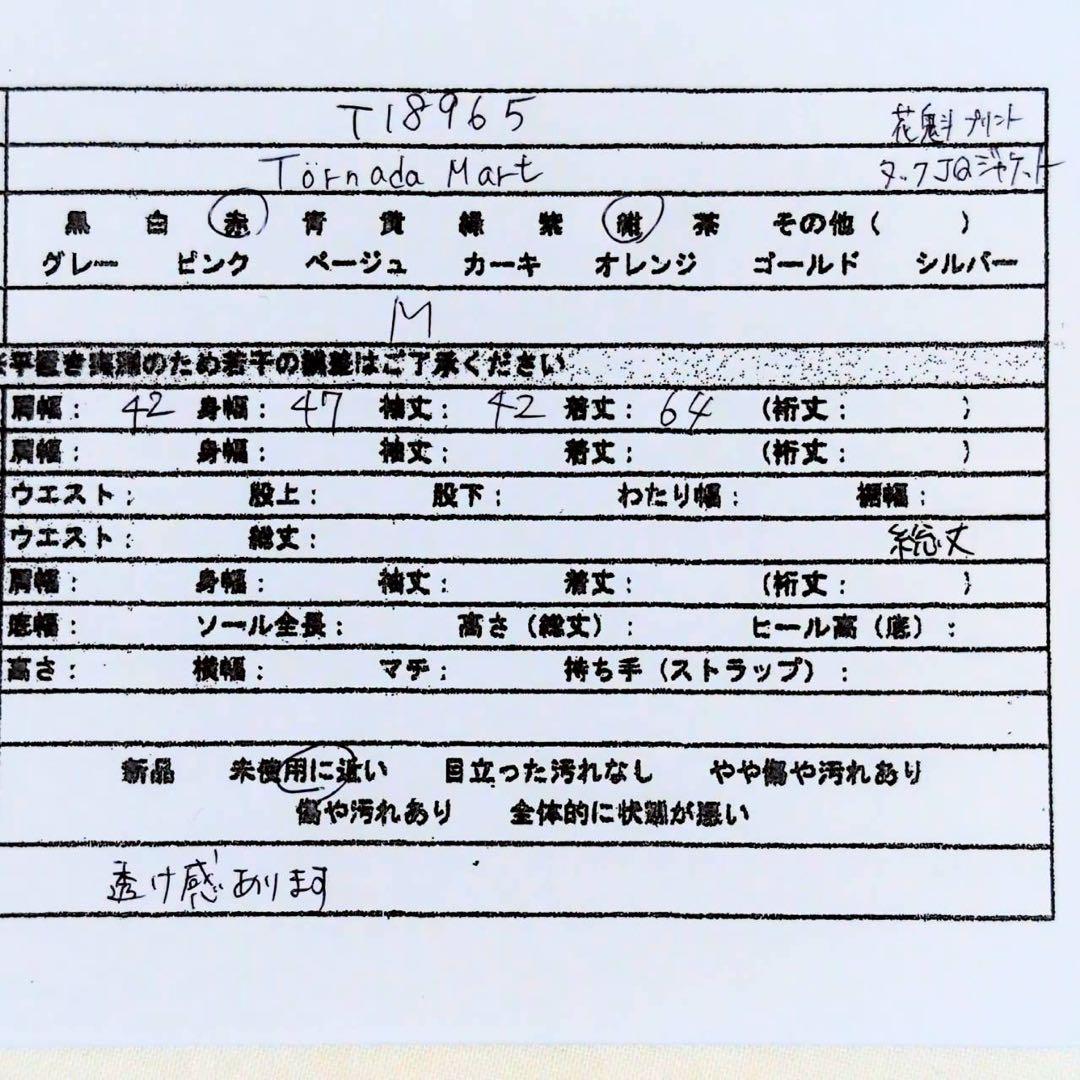 T18965 花魁プリント
Tornada Mart タックJQジャケット
黒 白 赤 青 黄 緑 紫 紺 茶 その他（ ）
グレー ピンク ベージュ カーキ オレンジ ゴールド シルバー
M
平置き実測のため若干の誤差はご了承ください
肩幅： 42 身幅： 47 袖丈： 42 着丈： 64 （裄丈： ）
肩幅： 身幅： 袖丈： 着丈： （裄丈： ）
ウエスト： 股上： 股下： わたり幅： 裾幅：
ウエスト： 総丈： 総丈
肩幅： 身幅： 袖丈： 着丈： （裄丈： ）
底幅： ソール全長： 高さ（総丈）： ヒール高（底）：
高さ： 横幅： マチ： 持ち手（ストラップ）：
新品 未使用に近い 目立った汚れなし やや傷や汚れあり
傷や汚れあり 全体的に状態が悪い
透け感あります